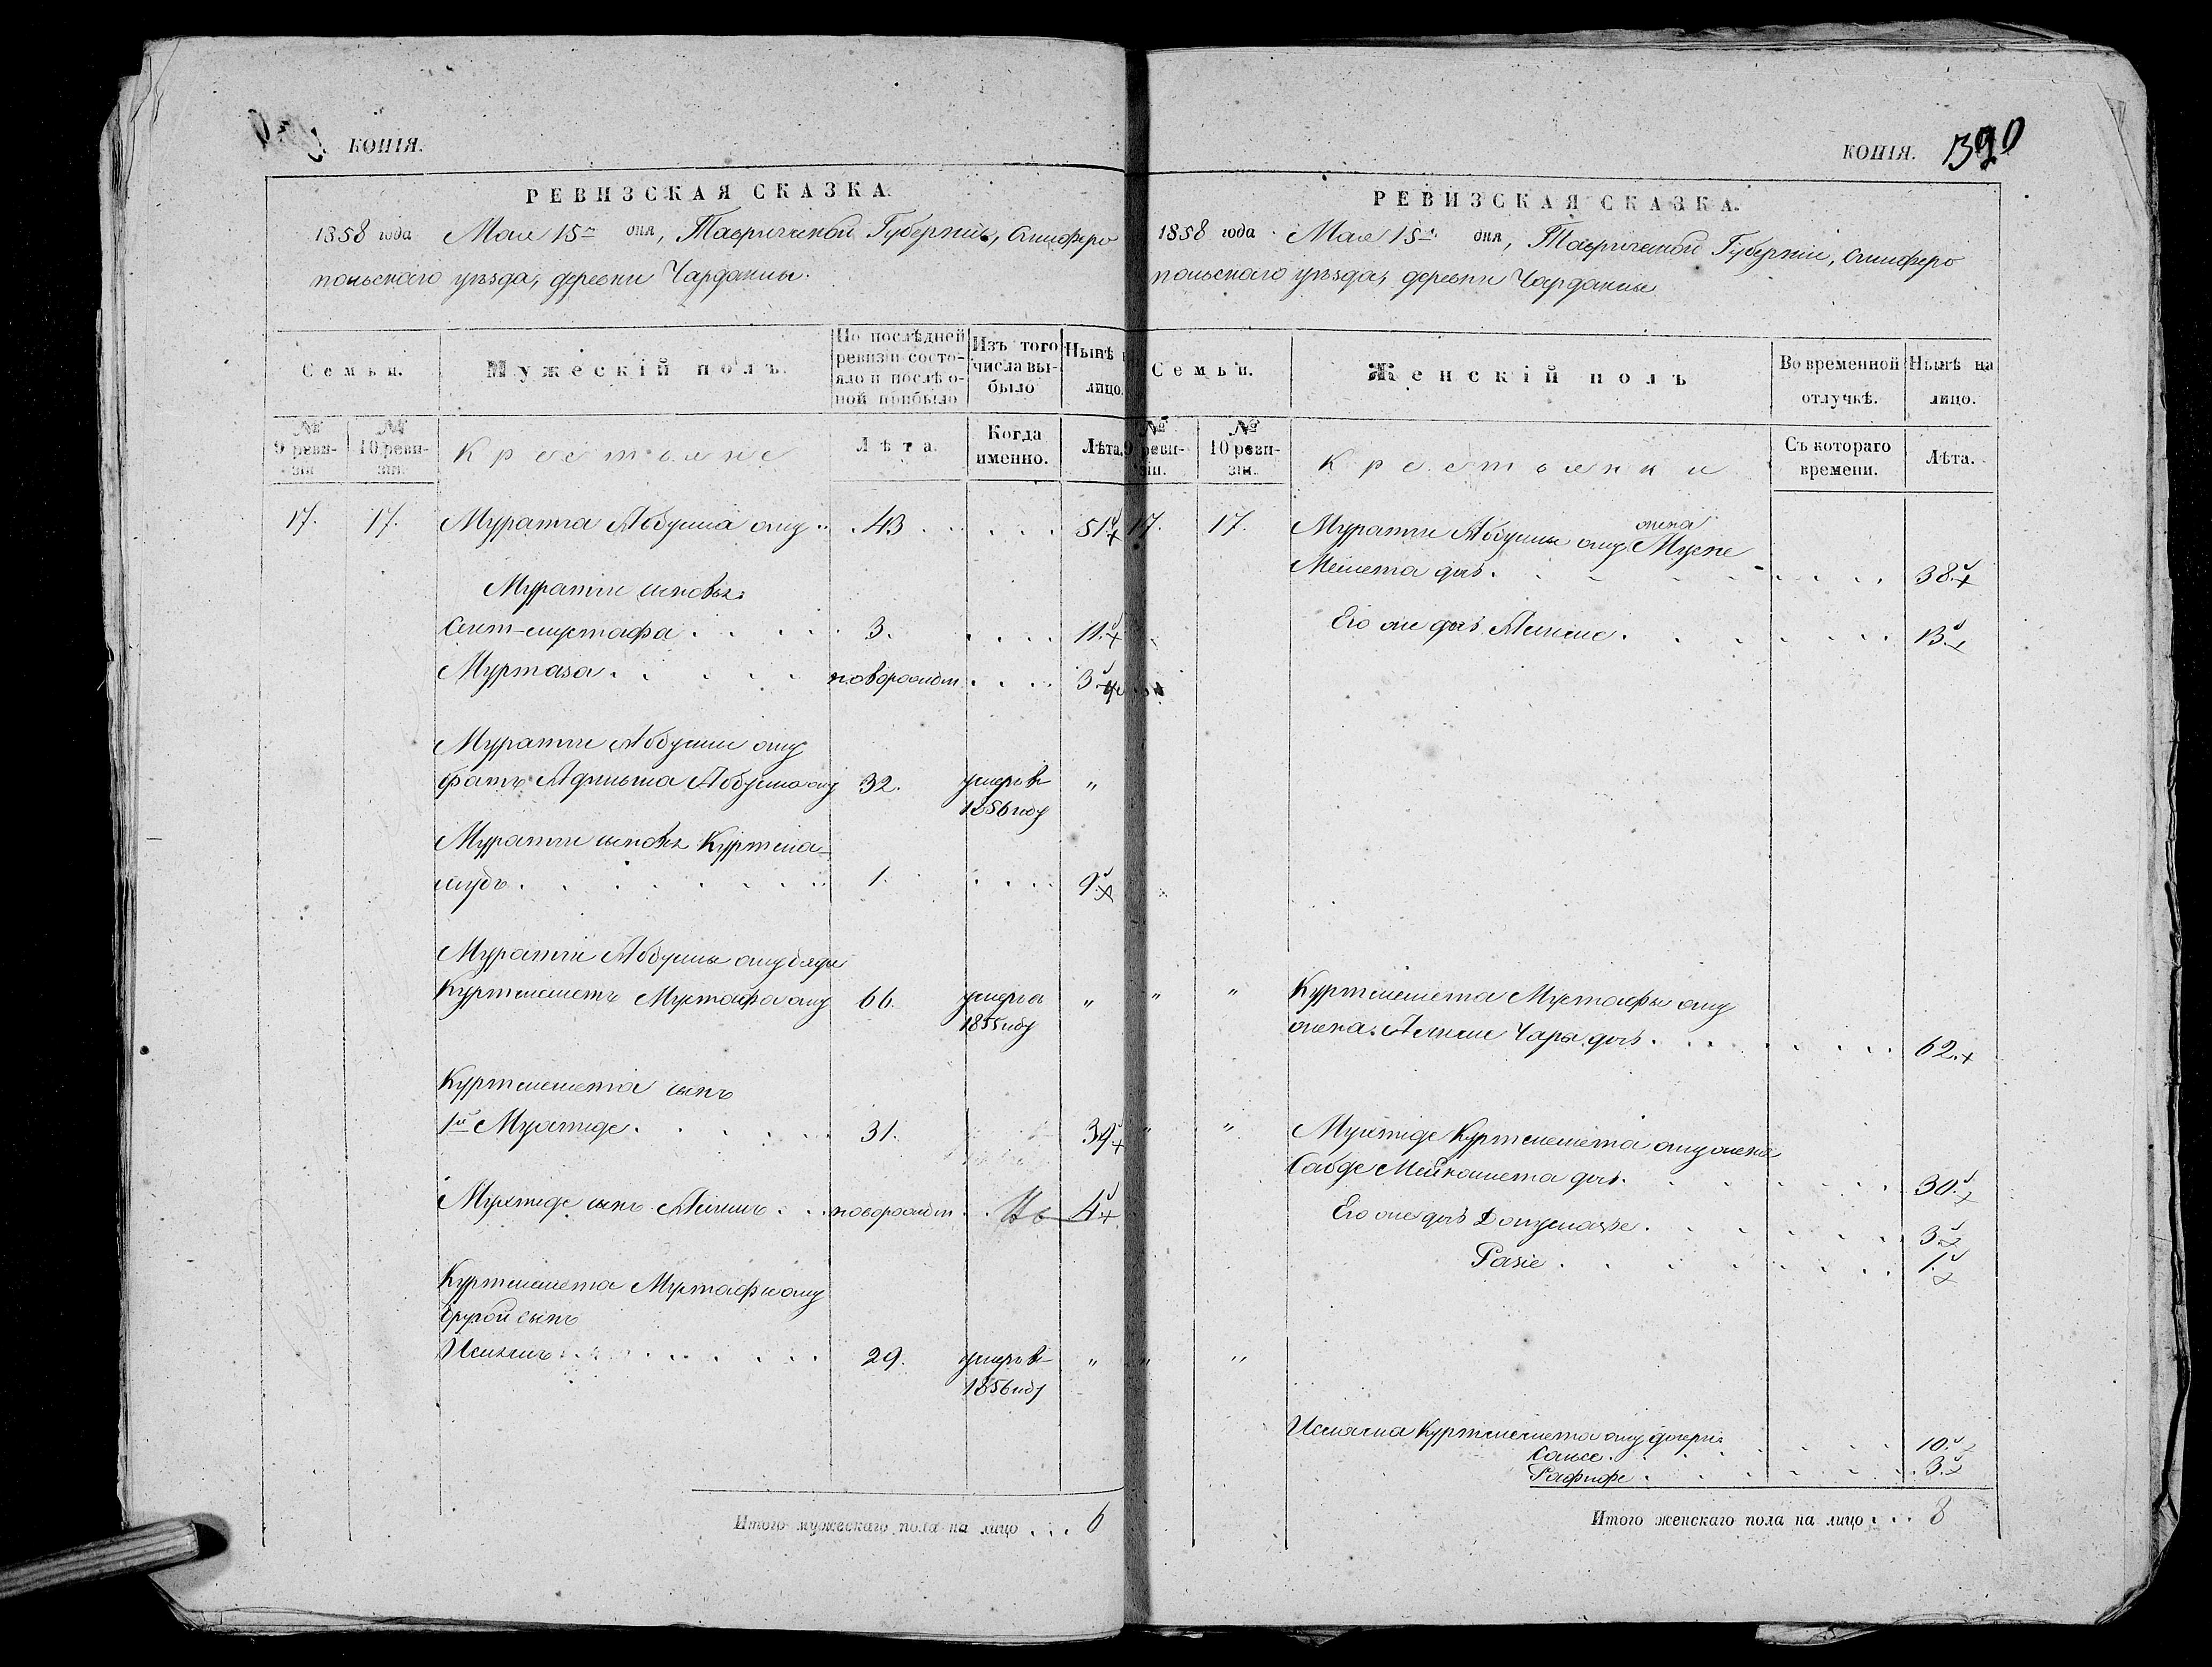 КОПІЯ.
РЕВИЗСКАЯ СКАЗКА.
1858 года Мая 15го дня, Таврической Губерніи, Симферо
польскаго уѣзда, деревни Чардаклы.
Семьи.
Мужескій полъ.
По послѣдней ревизіи состояло и послѣ оной прибыло
Изъ того числа выбыло
Нынѣ на лицо.
№ 9 реви-зіи.
№ 10 реви-зіи.
Крестьяне
Лѣта.
Когда именно.
Лѣта.
17. 17. Муратша Абдулла оглу . . 43 . . . . 51
Муратши сыновья:
Сеит-мустафа . . . . . 3. . . . . 11.
Муртаза . . . . . новорожден. . . . . 3
Муратши Абдуллы оглу
братъ Абдулла оглу 32. умеръ въ "
1856 году
Муратши сыновья Куртма-
мудъ . . . . . . . . 1. . . . . 9
Муратши Абдуллы оглу дядя
Куртмеметъ Мустафа оглу 66. умеръ въ "
1855 году
Куртмемета сынъ
1й Мухтиде . . . . . 31. 39
Мухтиде сынъ Алимъ . . новорожден . 4
Куртмемета Мустафы оглу
другой сынъ
Исмаилъ . . . . . . . 29. умеръ въ "
1856 году
Итого мужескаго пола на лицо . . . 6
КОПІЯ. 1390
РЕВИЗСКАЯ СКАЗКА.
1858 года Мая 15го дня, Таврической Губерніи, Симферо
польскаго уѣзда, деревни Чардаклы
Семьи.
Женскій полъ
Во временной отлучкѣ.
Нынѣ на лицо.
№ 9 реви-зіи.
№ 10 реви-зіи.
Крестьянки
Съ котораго времени.
Лѣта.
17. 17. Муратши Абдуллы оглу жена
Мемета дочь . . . . . . . . 38.
Его же дочь . . . . . . . 13.
" " Куртмемета Мустафы оглу
жена Чары дочь . . . . . . . 62.
" " Мухтиде Куртмемета оглу жена
Сабде дочь . . . . . . . 30.
Его же дочь . . . . . . . 3.
Разіе . . . . . . . . 1.
" "
Исмаила Куртмемета оглу дочери:
. . . . . . . 10.
Рафифе . . . . . . . 3.
Итого женскаго пола на лицо . . . 8